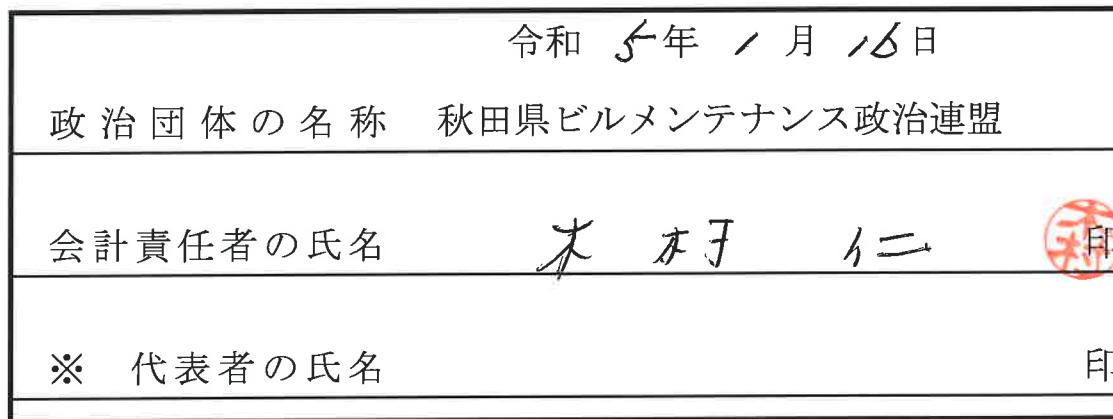 令和 5年 1月 16日
政治団体の名称 秋田県ビルメンテナンス政治連盟
会計責任者の氏名 木村 仁 印
※ 代表者の氏名 印